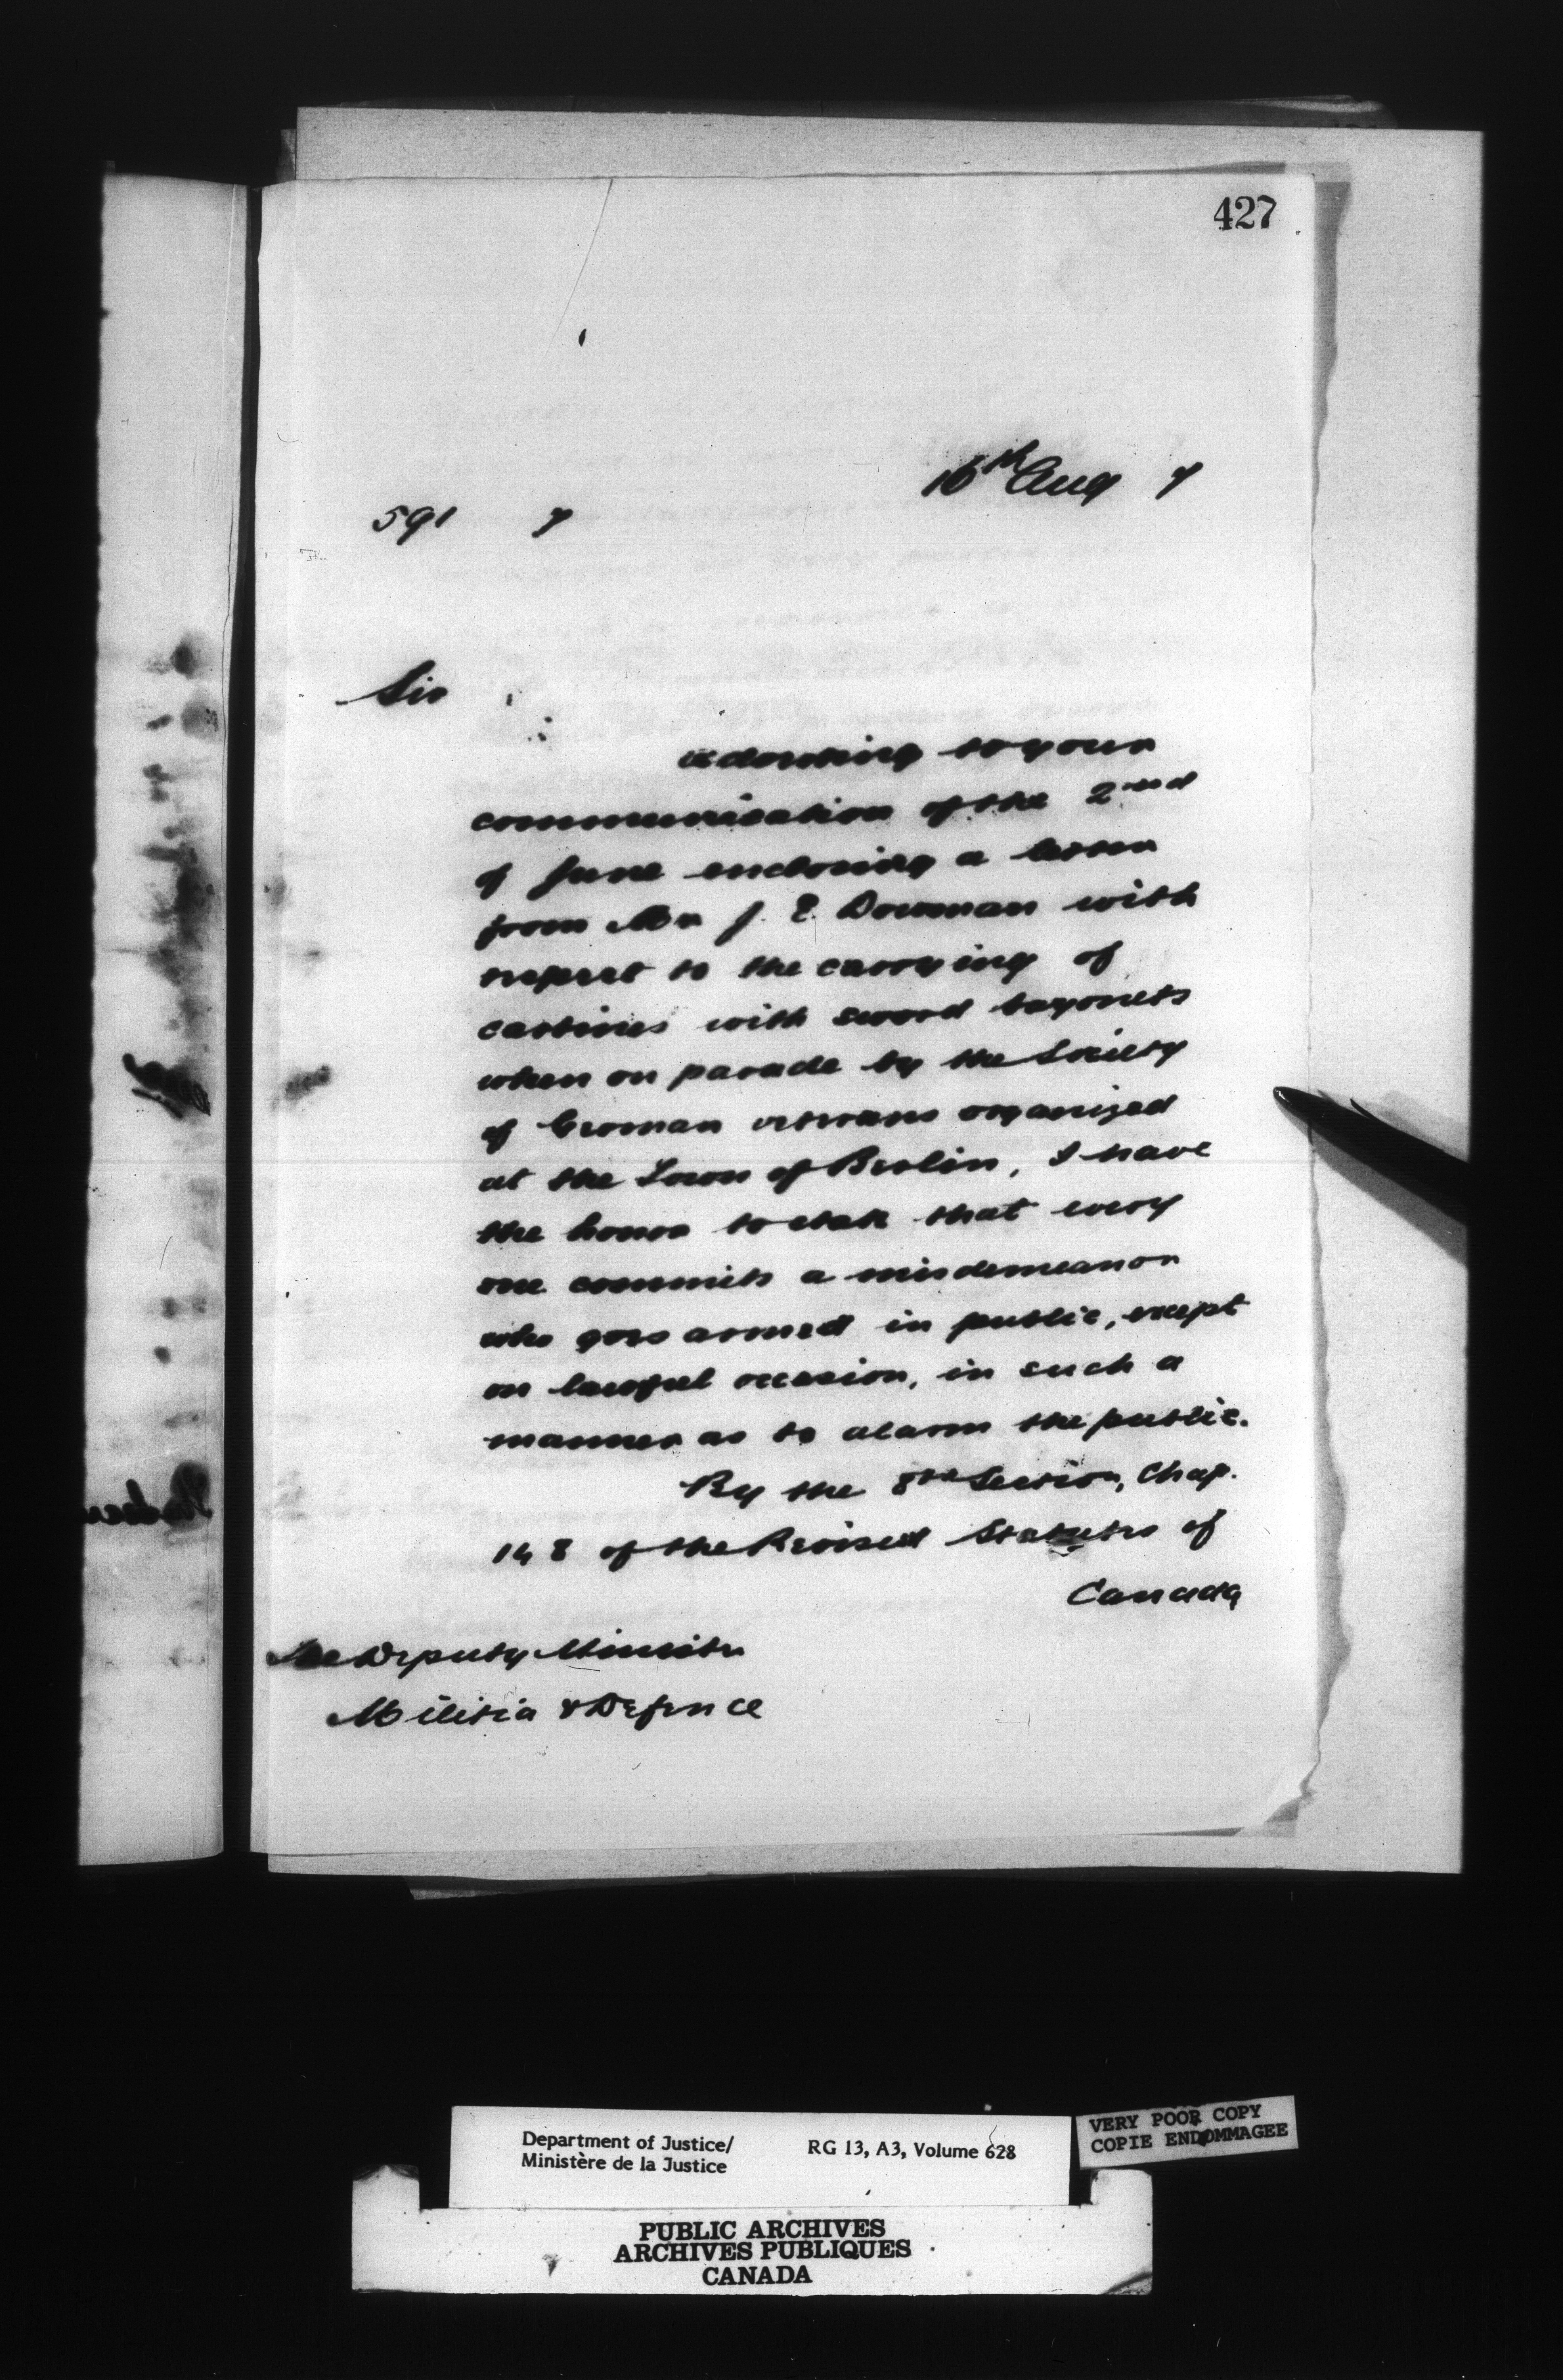 427
16th Aug 7
591 7
Sir
Adverting to your
communication of the 2nd
of June enclosing a letter
from Mr J. E. Bowman with
respect to the carrying of
carbines with sword bayonets
when on parade by the Society
of German veterans organized
at the Town of Berlin, I have
the honor to state that every
one commits a misdemeanor
who goes armed in public, except
on lawful occasion, in such a
manner as to alarm the public.
By the 8th Section, Chap.
148 of the Revised Statutes of
Canada
The Deputy Minister
Militia & Defence
Department of Justice/
Ministère de la Justice
RG 13, A3, Volume 628
VERY POOR COPY
COPIE ENDOMMAGEE
PUBLIC ARCHIVES
ARCHIVES PUBLIQUES
CANADA